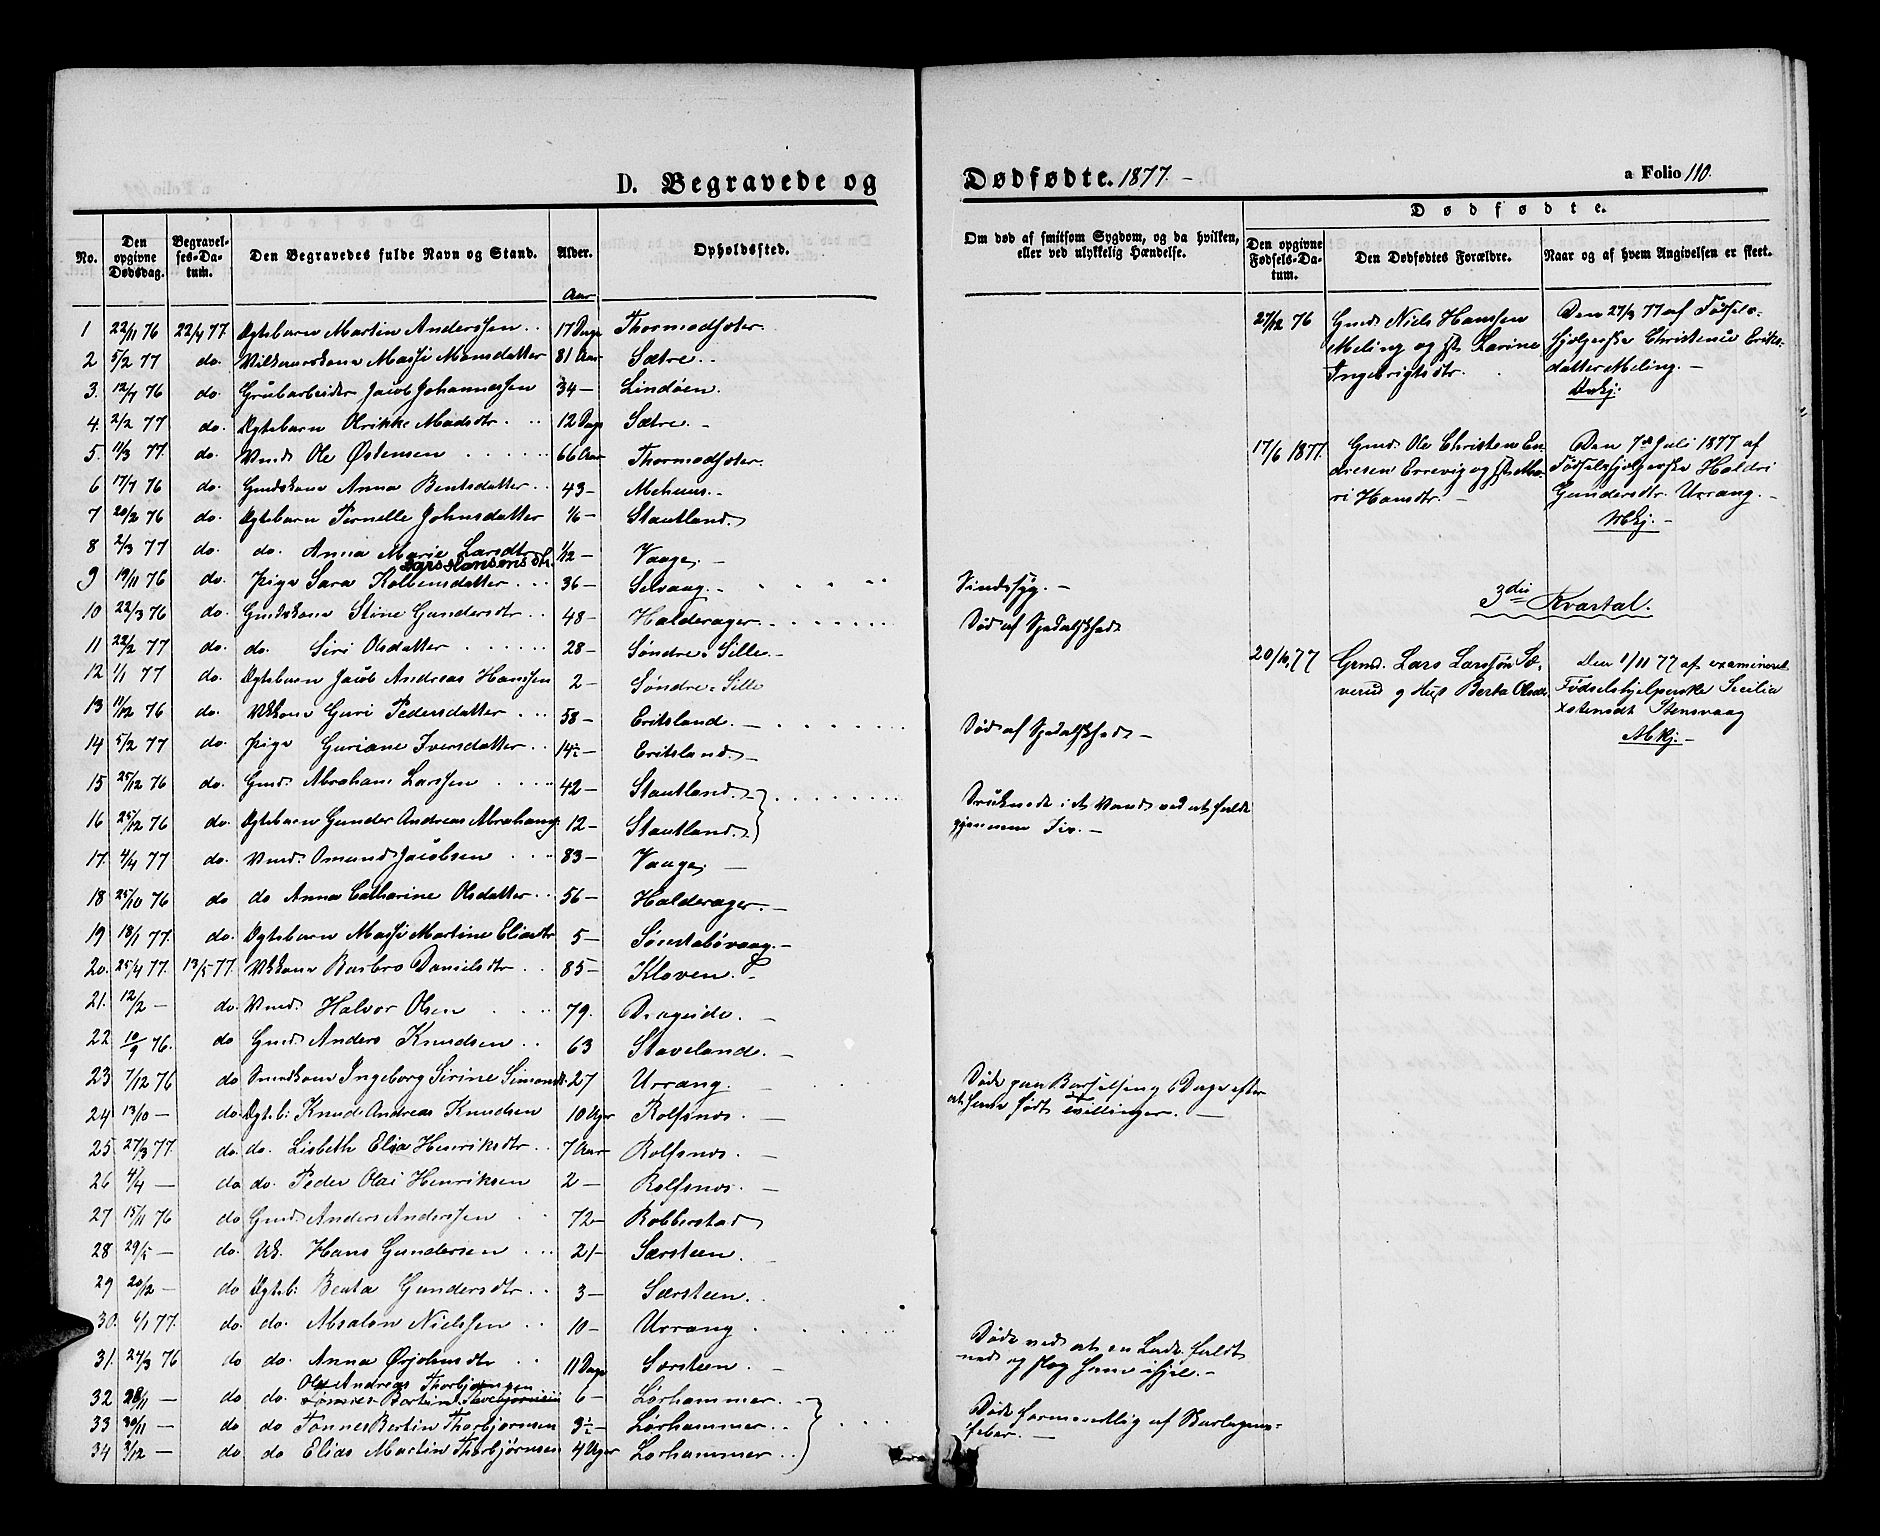 D. Begravede og
No.
Den opgivne Dødsdag.
Begravelses-Datum.
Den Begravedes fulde Navn og Stand.
Alder.
Opholdssted.
Aar
1 22/11 76 22/4 77. Ægtebarn Martin Anderssen 17 Dage Thormodsæter
2 5/2 77 do. Massi Monsdatter 81 Aar Sætre
3. 12/7 76 do. Grubarbeider Jacob Johannessen 34 Lindøen.
4. 2/2 77 do. Ægtebarn Olrikke Madsdtr 12 Dage Sætre
5. 11/3 77. do. Ole Østensen 66 Aar Thormodsæter.
6 17/7 76 do. Gmdskone Anna Bentsdatter 43 Mehuus
7 20/2 76 do. Ægtebarn Pernelle Johnsdatter 1/6 Stautland
8 2/3 77 do. do. Anna Marie Larsdtr 1/12 Vaage
9 19/11 76 do. Pige Sara Kolbensdatter 36 Selvaag
10 22/3 76 do. Gmdskone Stine Gundersdtr 48 Halderager
11 22/2 77 do. do. Siri Olsdatter 28 Søndre Sille
12 1/1 77 do. Ægtebarn Jacob Andreas Hanssen 2 Søndre Sille
13 11/12 76 do. Guri Pedersdatter 58 Eritsland
14 5/2 77 do. Pige Guriane Iversdatter 14½ Eritsland
15 25/12 76 do. Gmd. Abraham Larssen 42 Stautland
16 25/12 76 do. Ægtebarn Gunder Andreas Abrahams 12 Stautland
17. 4/4 77 do. Omund Jacobsen 83 Vaage
18 25/10 76 do do Anna Catharine Olsdatter 56 Halderager
19 18/1 77. do. Ægtebarn Massi Martine Eliasdtr 5 Sønstabøvaag
20. 25/4 77. 13/5 77. Barbro Danielsdtr 85 Kloven
21. 12/2 do. Halvor Olsen 79. Drageide
22 10/9 76. do Gmd. Anders Knudsen 63 Staveland
23 7/12 76 do Ingeborg Sirine Simonsdtr. 27 Urrang
24 13/10 do. Ægteb: Knud Andreas Knudsen 10 Uger Rolfsnæs
25 27/3 77. do. do. Lisbeth Elisa Henriksdtr 7 Aar Rolfsnæs
26 4/4 do do. Peder Olai Henriksen 2 Rolfsnæs
27 15/11 76 do Gmd. Anders Anderssen 72 Robberstad
28 29/5 do. Uk. Hans Gundersen 21 Særsteen
29 20/12 do Ægteb: Benta Gundersdtr 3 Særsteen
30. 6/1 77. do. do. Absalon Nielssen 10 Urrang
31. 24/3 76 do do. Anna Ørjohnsdtr 11 Dage Særsteen
32 28/11 do do. Ole Andreas Thorbjørnsen 6 Lørhammer
33 30/11 do do Tønnes Bertin Thorbjørnsen 3½ Lørhammer
34 3/12 do do Elias Martin Thorbjørnsen 4 Uger Lørhammer
Dødfødte. 1877.
a Folio 110.
Om død af smitsom Sygdom, og da hvilken, eller ved ulykkelig Hændelse.
Dødfødte.
Den opgivne Fødsels-Datum.
Den Dødfødtes Forældre.
Naar og af hvem Angivelsen er skeet.
Sindssyg.
Død af Spedalskhed
Død af Spedalskhed
Druknede i et Vand ved at falde
gjennem Iis.
Døde paa Barselseng 6 Dage efter
at have født tvillinger.
Døde ved at en Lade faldt
ned og slog ham ihjel.
Døde formentlig af Barlagens-
feber.
27/12 76
Gmd. Niels Hanssen
Meling og Hst. Lavine
Ingebrigtsdtr.
Den 27/3 77 af Fødsels-
hjælperske Christense Eriks-
datter Meling.
17/6 1877.
Gmd. Ole Christen En-
dresen Errevig og Hst. Ma-
ri Hansdtr.
Den 7de Juli 1877 af
Fødselshjælperske Haldri
Gundersdtr. Urrang.
3die Kvartal.
20/10 77
Gmd. Lars Larssøn Sæ-
verud og Hust Berta Olsdtr.
Den 1/11 77 af examineret
Fødselshjelperske Sicilia
Østensdt Stensvaag